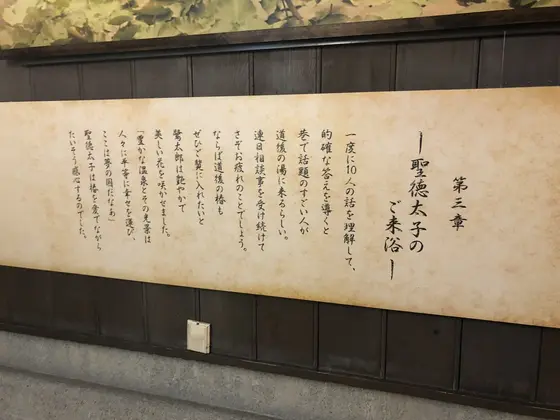 第三章
ー聖徳太子の
ご来浴ー
一度に10人の話を理解して、
的確な答えを導くと
巷で話題のすごい人が
道後の湯に来るらしい。
連日相談事を受け続けて
さぞお疲れのことでしょう。
ならば道後の椿も
ぜひご覧に入れたいと
鷺太郎は艶やかで
美しい花を咲かせました。
「豊かな温泉とその光景は
人々に平等に幸せを運び、
ここは夢の国だなあ」
聖徳太子は椿を愛でながら
たいそう感心するのでした。